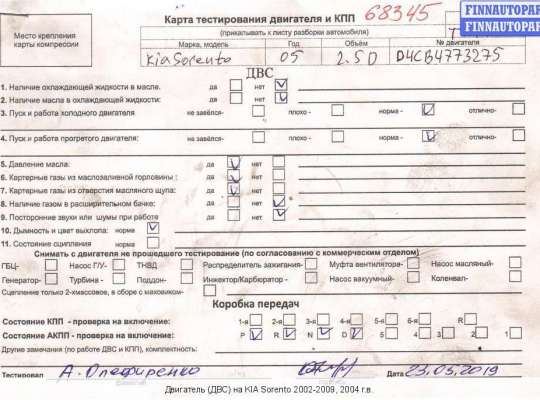 FINNAUTOPAR
FINNAUTOPAR
Место крепления карты компрессии
Карта тестирования двигателя и КПП 68345
(прикалывать к листу разборки автомобиля)
Марка, модель Год Объём № двигателя
Kia Sorento 05 2.5D D4CB4773275
ДВС
1. Наличие охлаждающей жидкости в масле. да нет
2. Наличие масла в охлаждающей жидкости: да нет
3. Пуск и работа холодного двигателя не завелся- плохо - норма - отлично-
4. Пуск и работа прогретого двигателя: не завелся- плохо - норма - отлично-
5. Давление масла: да нет
6. Картерные газы из маслозаливной горловины : да нет
7. Картерные газы из отверстия масляного щупа: да нет
8. Наличие газов в расширительном бачке: да нет
9. Посторонние звуки или шумы при работе да нет
10. Дымность и цвет выхлопа: норма
11. Состояние сцепления норма
Снимать с двигателя не прошедшего тестирование (по согласованию с коммерческим отделом)
ГБЦ- Насос Г/У- ТНВД Распределитель зажигания- Муфта вентилятора- Насос масляный-
Генератор- Турбина - Поддон- Инжектор/Карбюратор - Насос вакуумный- Коленвал-
Сцепление только 2-хмассовое, в сборе с маховиком-
Коробка передач
Состояние КПП - проверка на включение: 1-я 2-я 3-я 4-я 5-я 6-я R
Состояние АКПП - проверка на включение: P R N D 5 4 3 2 1
Другие замечания (по работе ДВС и КПП), комплектность:
Тестировал А. Олефиренко Дата 23.05.2019
Двигатель (ДВС) на KIA Sorento 2002-2009, 2004 г.в.